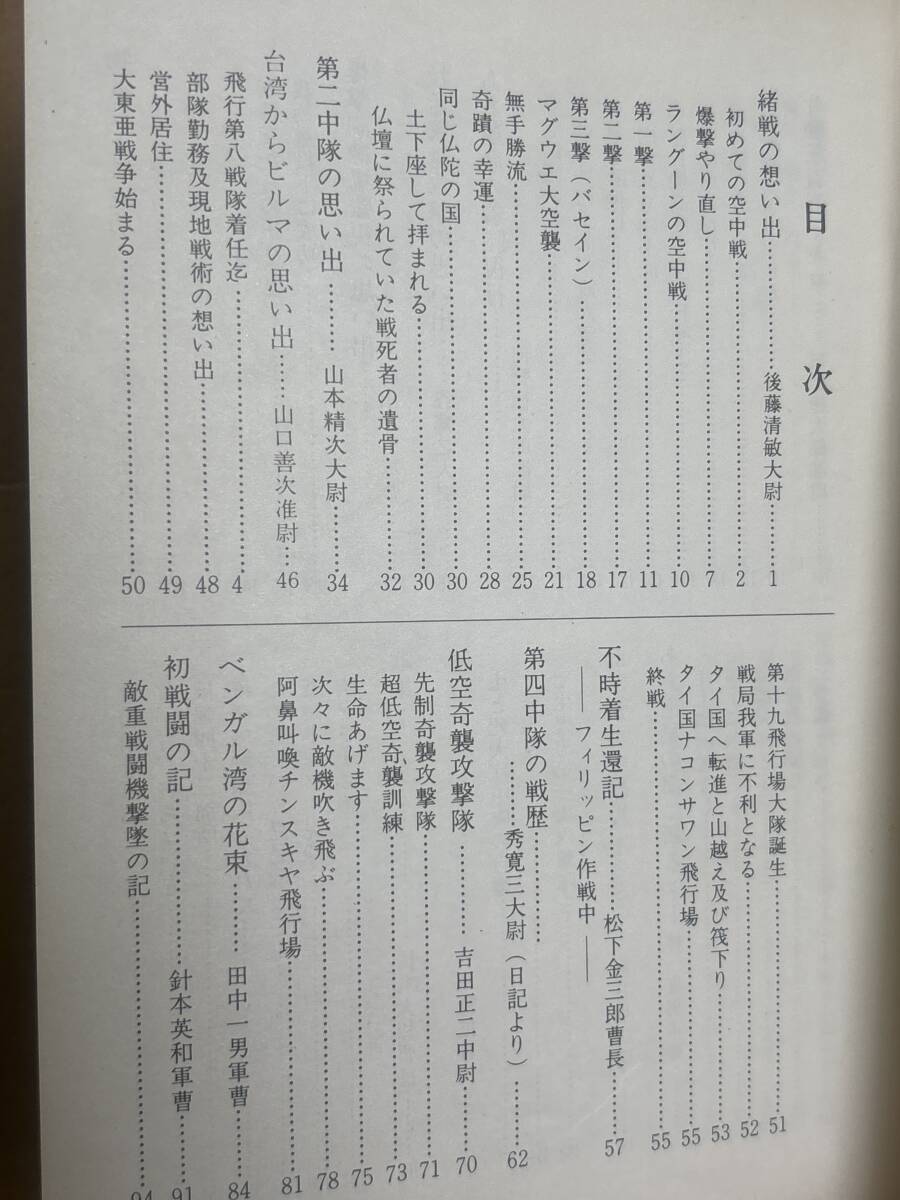 目次
緒戦の想い出……………後藤清敏大尉………1
初めての空中戦……………2
爆撃やり直し……………7
ラングーンの空中戦……………10
第一撃……………11
第二撃……………17
第三撃(バセイン)……………18
マグウエ大空襲……………21
無手勝流……………25
奇蹟の幸運……………28
同じ仏陀の国……………30
土下座して拝まれる……………30
仏壇に祭られていた戦死者の遺骨……………32
第二中隊の思い出………山本精次大尉………34
台湾からビルマの思い出……山口善次准尉…46
飛行第八戦隊着任迄……………4
部隊勤務及現地戦術の想い出……………48
営外居住……………49
大東亜戦争始まる……………50
第十九飛行場大隊誕生……………51
戦局我軍に不利となる……………52
タイ国へ転進と山越え及び筏下り……………53
タイ国ナコンサワン飛行場……………55
終戦……………55
不時着生還記…………松下金三郎曹長……57
――フィリッピン作戦中――
第四中隊の戦歴……………
………秀寛三大尉(日記より)………62
低空奇襲攻撃隊………吉田正二中尉………70
先制奇襲攻撃隊……………71
超低空奇襲訓練……………73
生命あげます……………75
次々に敵機吹き飛ぶ……………78
阿鼻叫喚チンスキヤ飛行場……………81
ベンガル湾の花束………田中一男軍曹………84
初戦闘の記……………針本英和軍曹………91
敵重戦闘機撃墜の記……………94